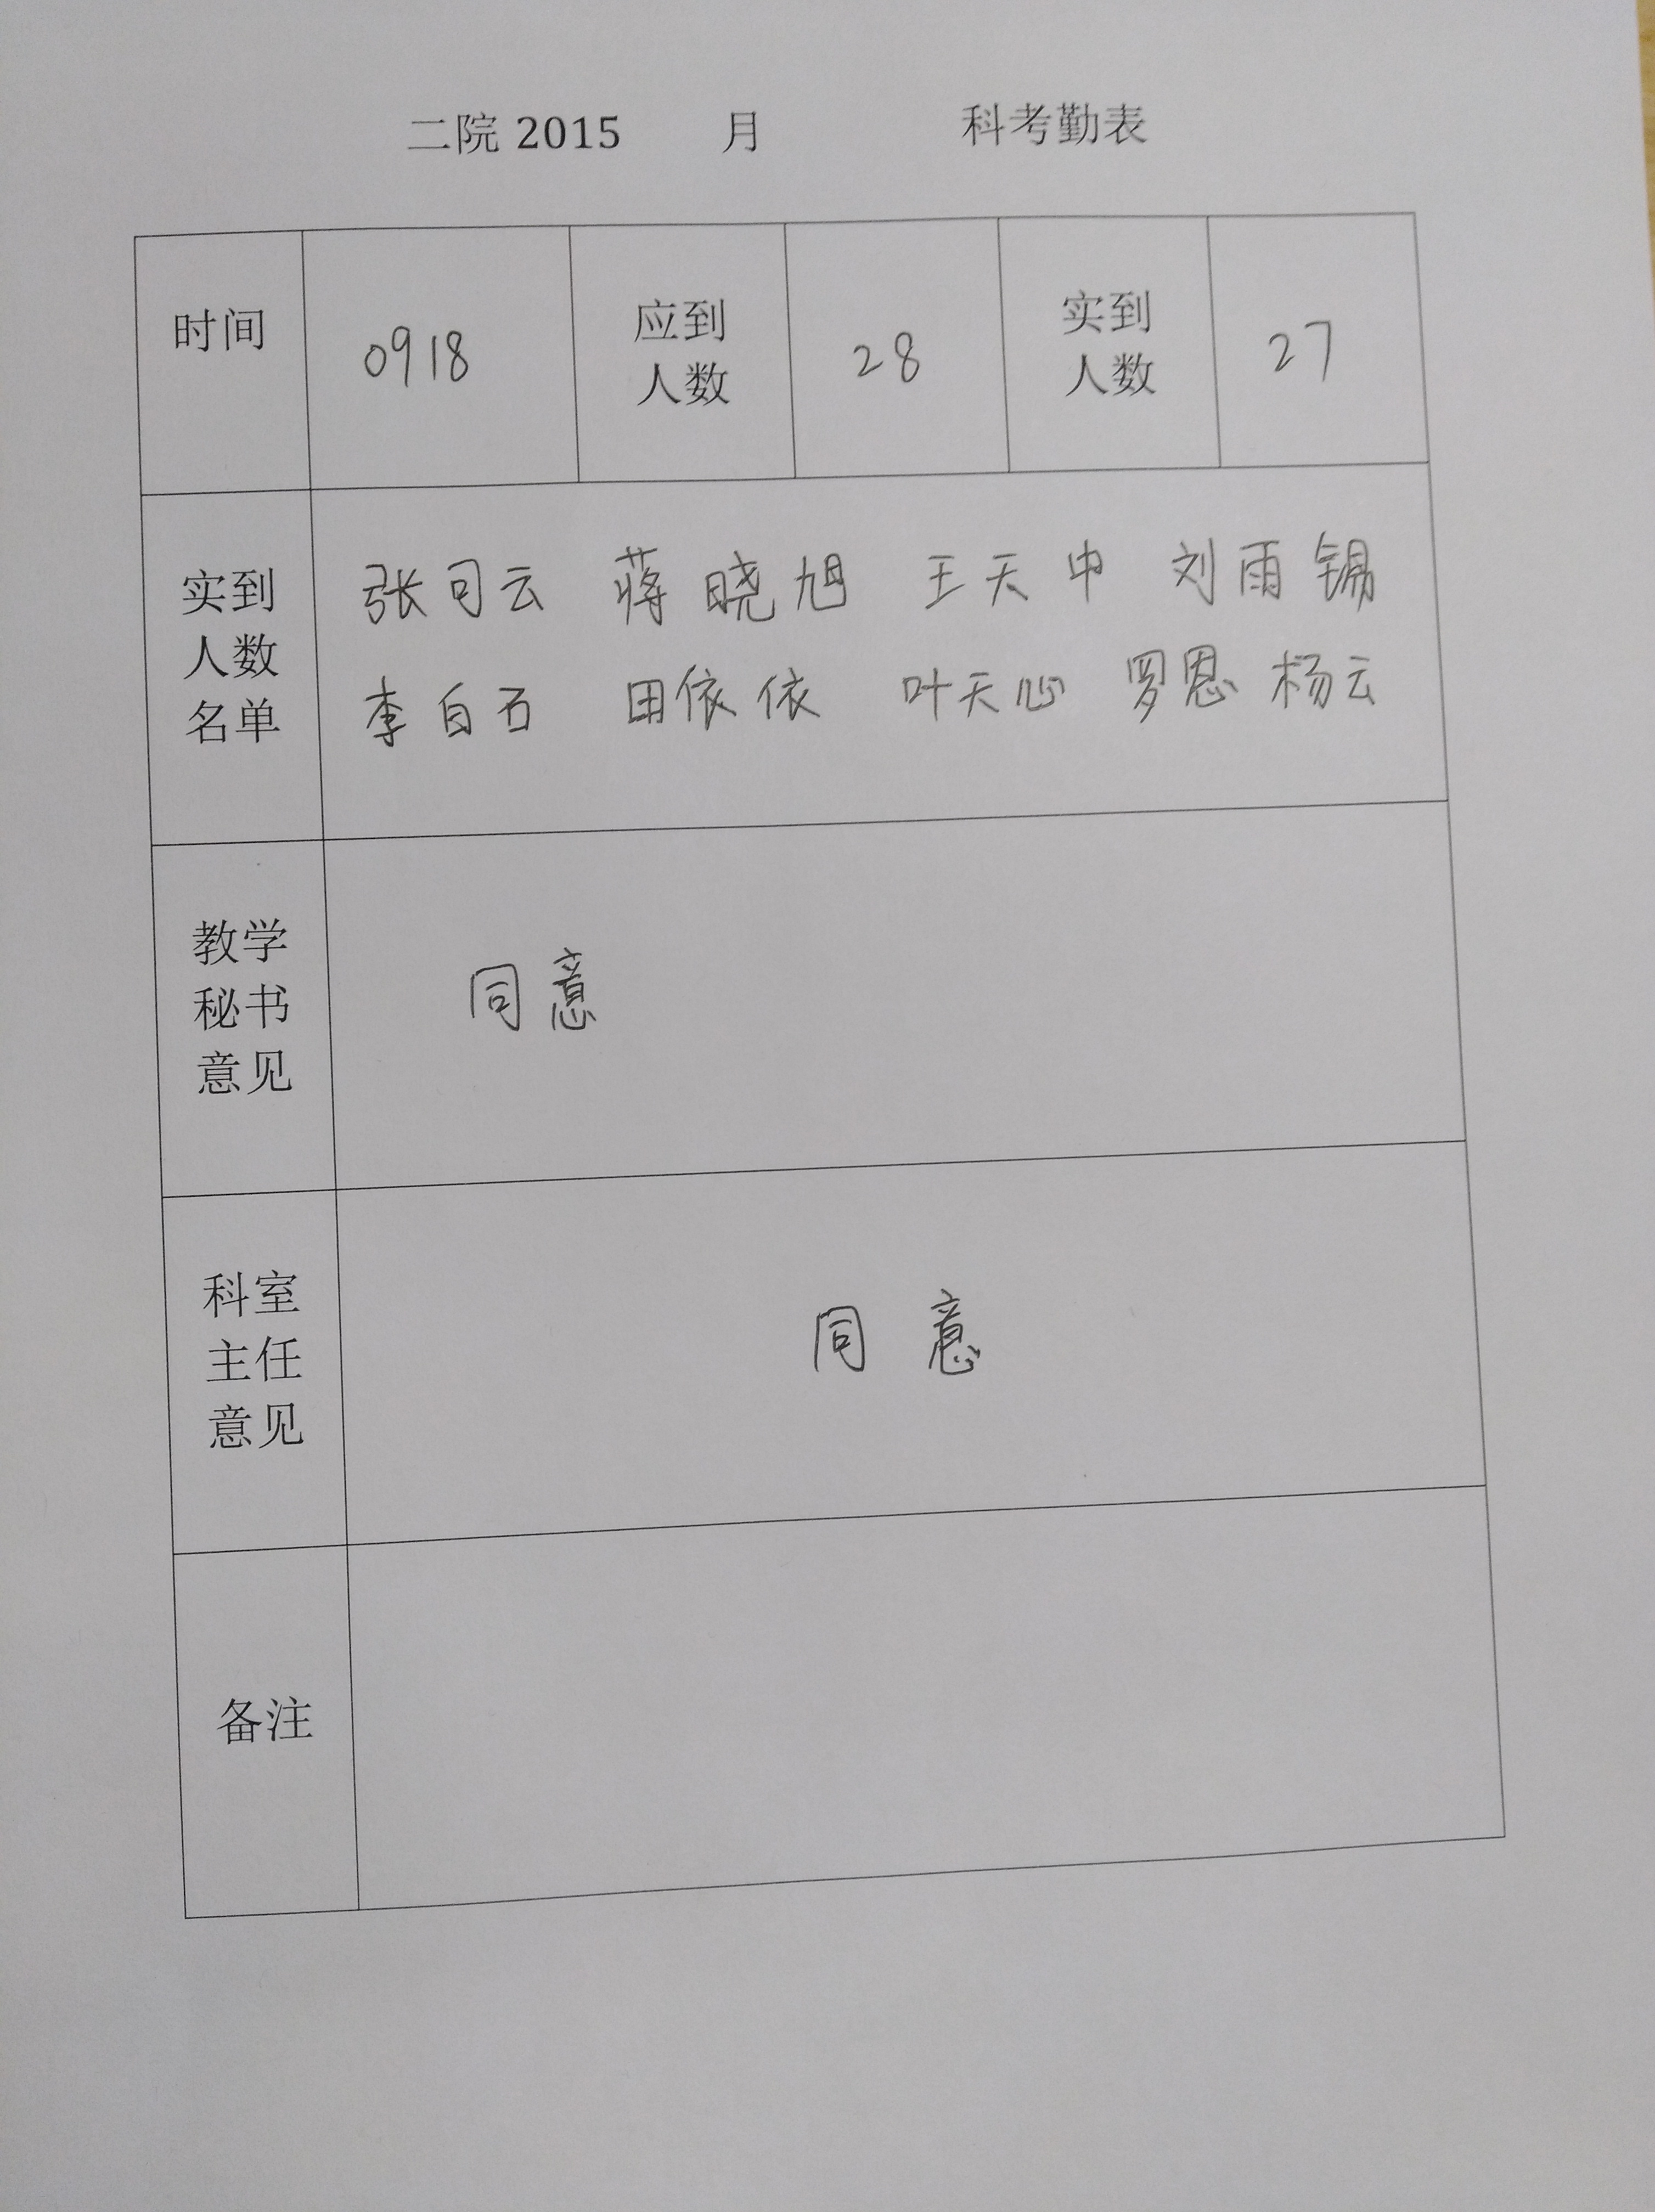 二院 2015 月 科考勤表
时间 0918 应到人数 28 实到人数 27
实到人数名单
张司云 蒋晓旭 王天中 刘雨锡
李白石 田依依 叶天心 罗恩 杨云
教学秘书意见
同意
科室主任意见
同意
备注